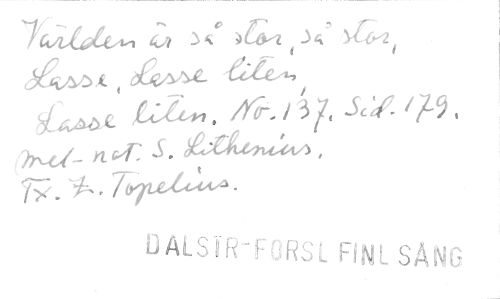 Världen är så stor, så stor,
Lasse, Lasse liten,
Lasse liten. No. 137. Sid. 179.
mel-not. S. Lithenius.
Tx. Z. Topelius.
DALSTR-FORSL FINL SÅNG